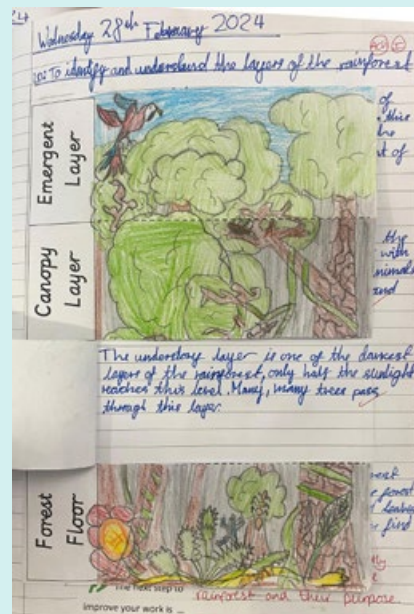 Wednesday 28th February 2024
LO: To identify and understand the layers of the rainforest
Emergent
Layer
of
this
the
of
Canopy
Layer
the
with
animals
and
The understory layer is one of the darkest
layers of the rainforest, only half the sunlight
reaches this level. Many, many trees pass
through this layer.
Forest
Floor
forest
find
The next step to
improve your work is
rainforest and their purpose.